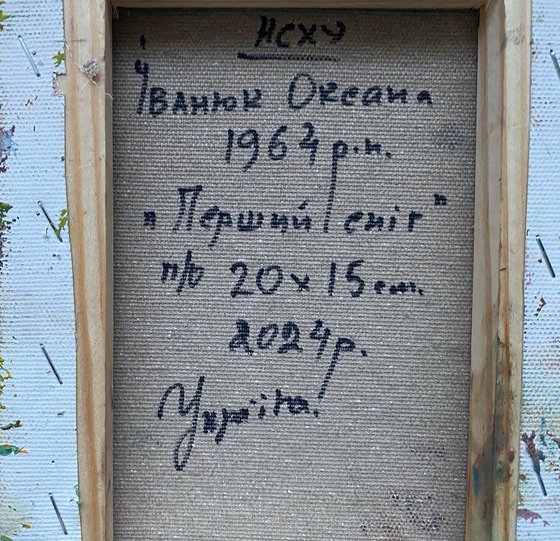 НСХУ
Іванюк Оксана
1964 р.н.
„Перший сніг"
п/о 20 x 15 см.
2024 р.
Україна.